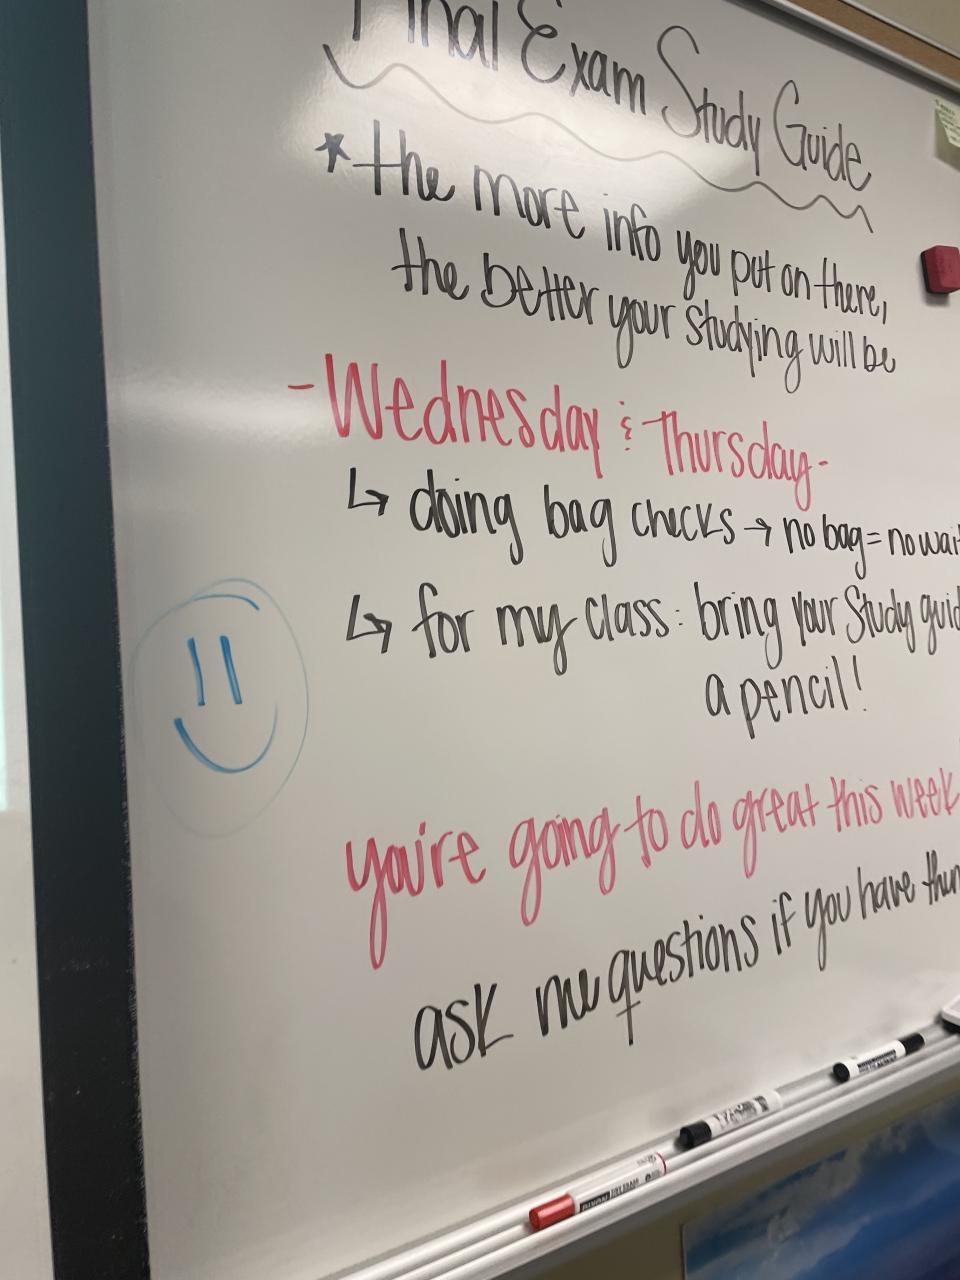 Final Exam Study Guide
* the more info you put on there,
the better your studying will be
- Wednesday & Thursday -
↳ doing bag checks → no bag = no wai
↳ for my class: bring your Study guid
a pencil!
you're going to do great this week
ask me questions if you have